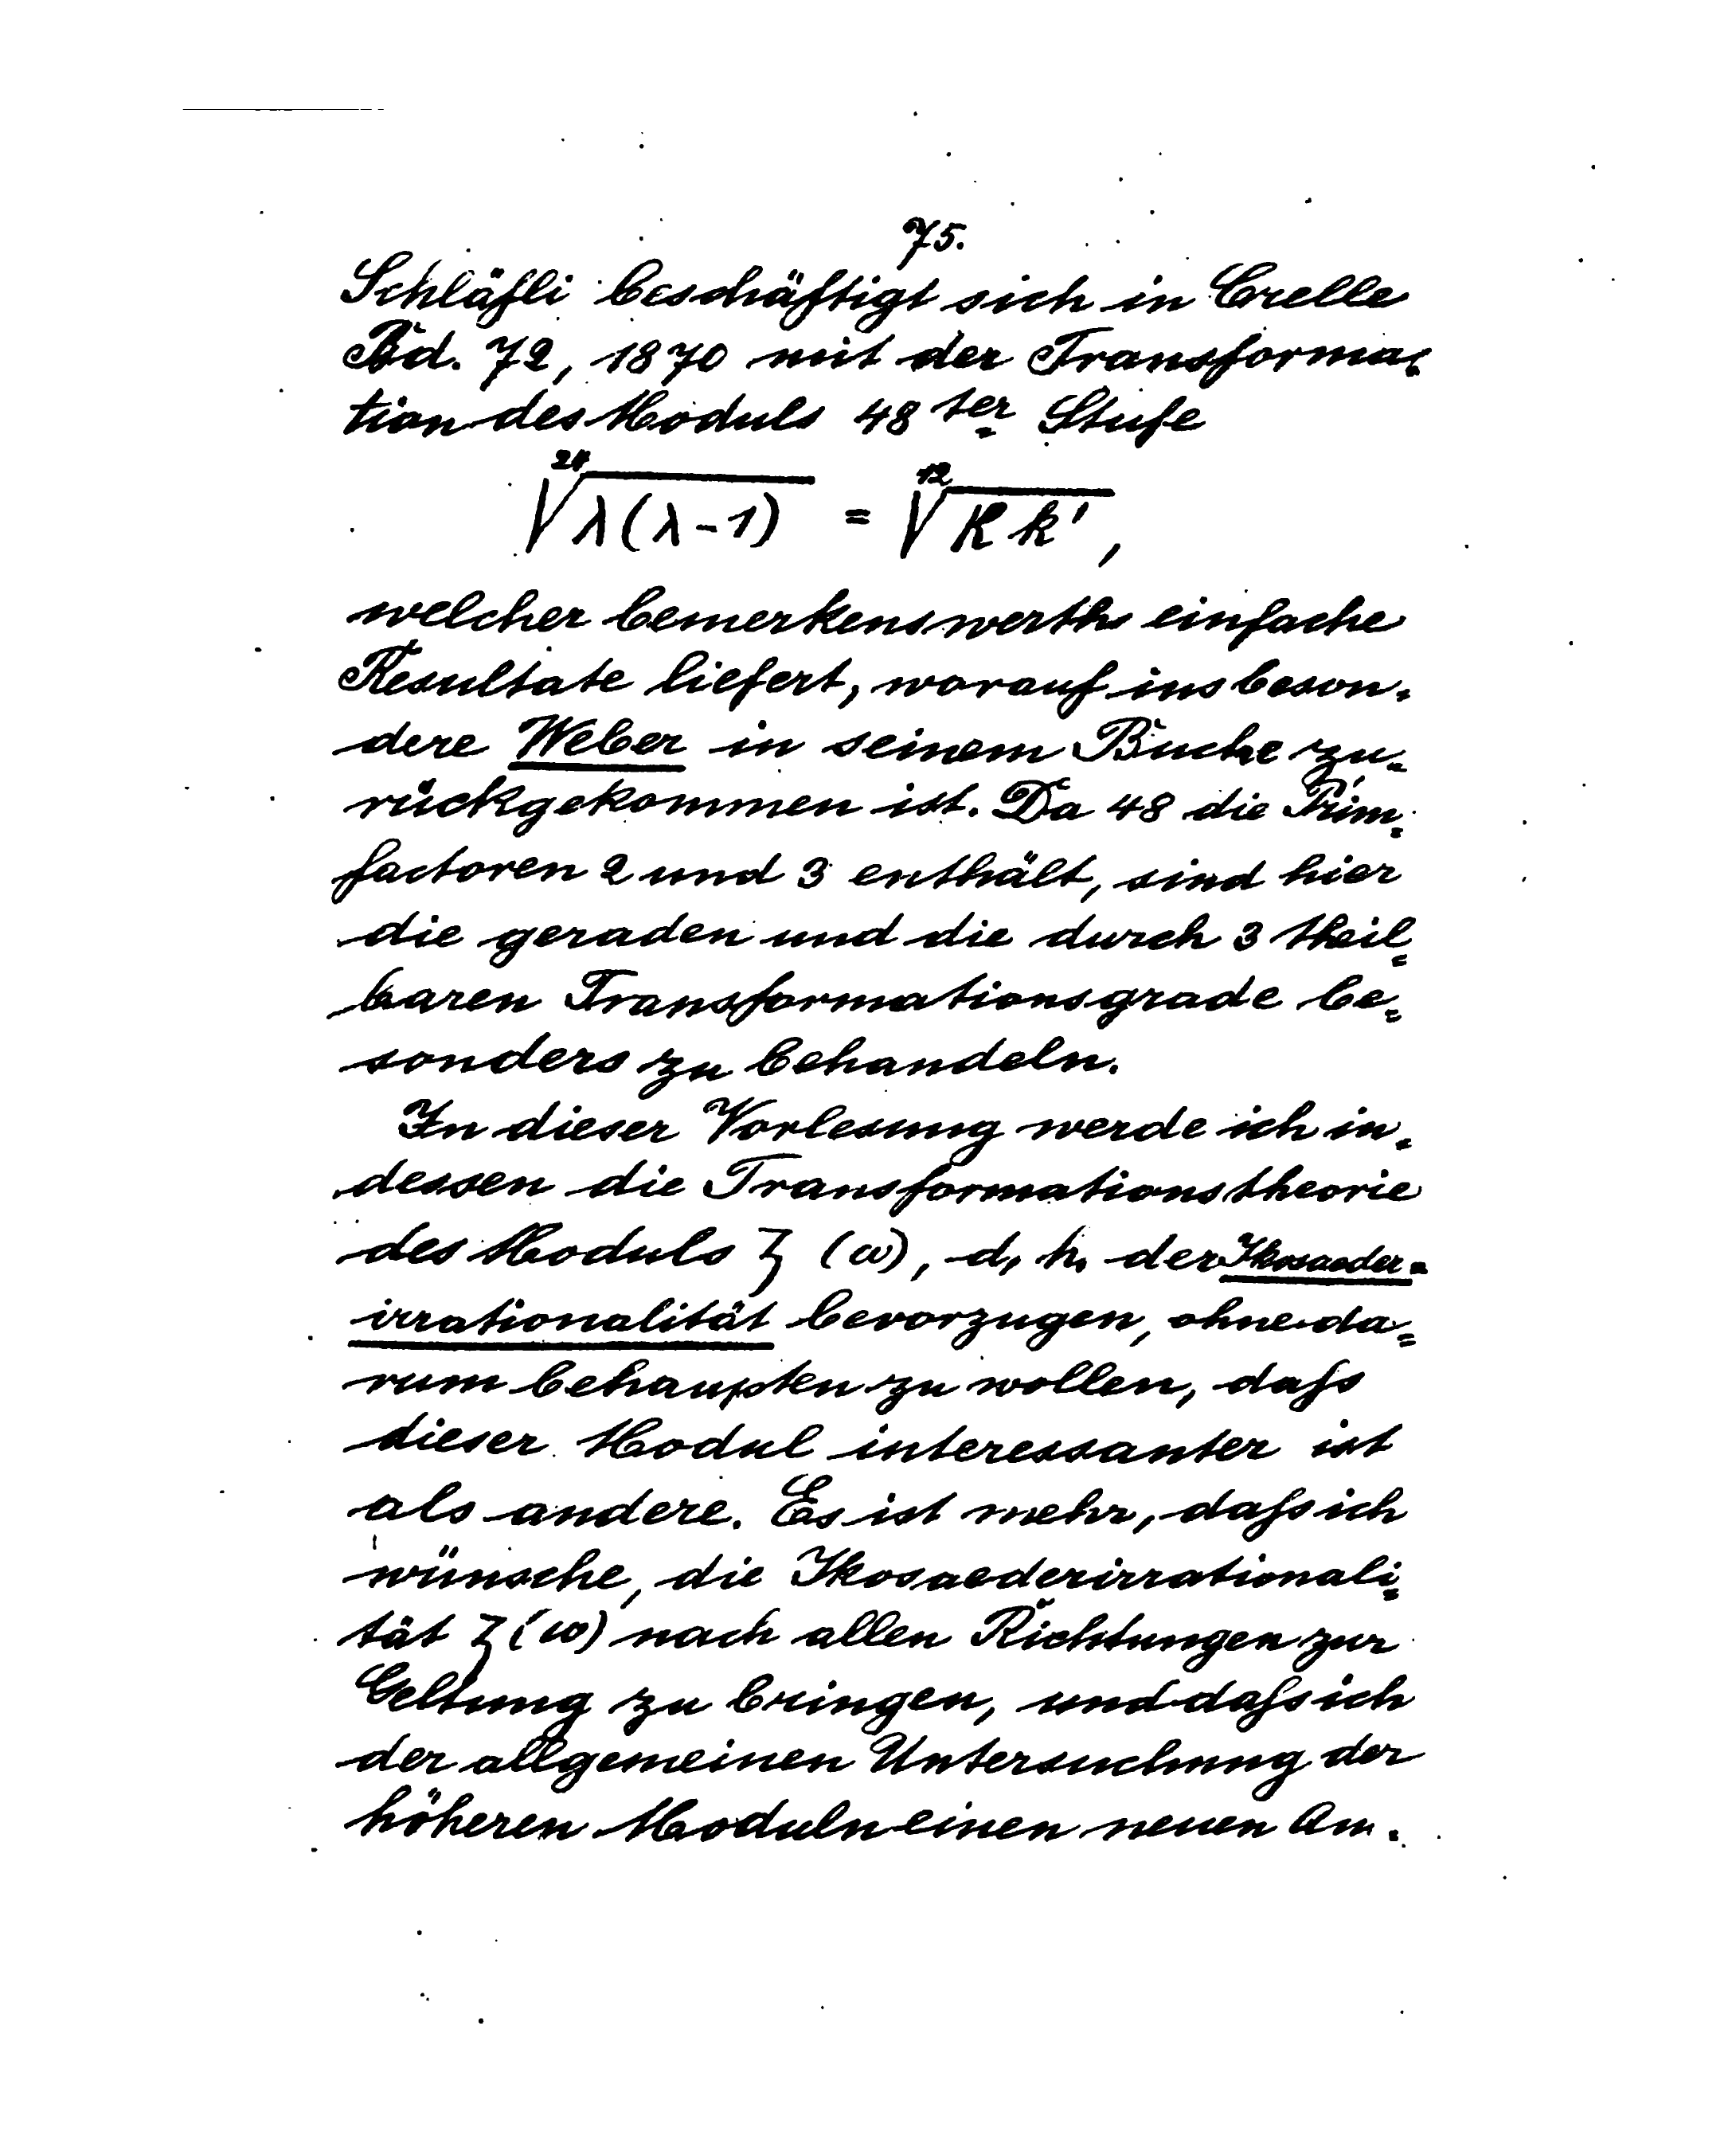 75.
Schläfli beschäftigt sich in Crelle
Bd. 72, 1870 mit der Transforma=
tion des Moduls 48 ter Stufe
²⁴√λ(λ-1) = ¹²√k k',
welcher bemerkenswerth einfache
Resultate liefert, worauf insbeson=
dere Weber in seinem Buche zu=
rückgekommen ist. Da 48 die Prim=
factoren 2 und 3 enthält, sind hier
die geraden und die durch 3 theil=
baren Transformationsgrade be=
sonders zu behandeln.
In dieser Vorlesung werde ich in=
dessen die Transformationstheorie
des Moduls ζ (ω), d. h. der Ikosaeder=
irrationalität bevorzugen, ohne da=
rum behaupten zu wollen, dafs
dieser Modul interessanter ist
als andere. Es ist mehr, dafs ich
wünsche, die Ikosaederirrationali=
tät ζ(ω) nach allen Richtungen zur
Geltung zu bringen, und dafs ich
der allgemeinen Untersuchung der
höheren Moduln einen neuen An=